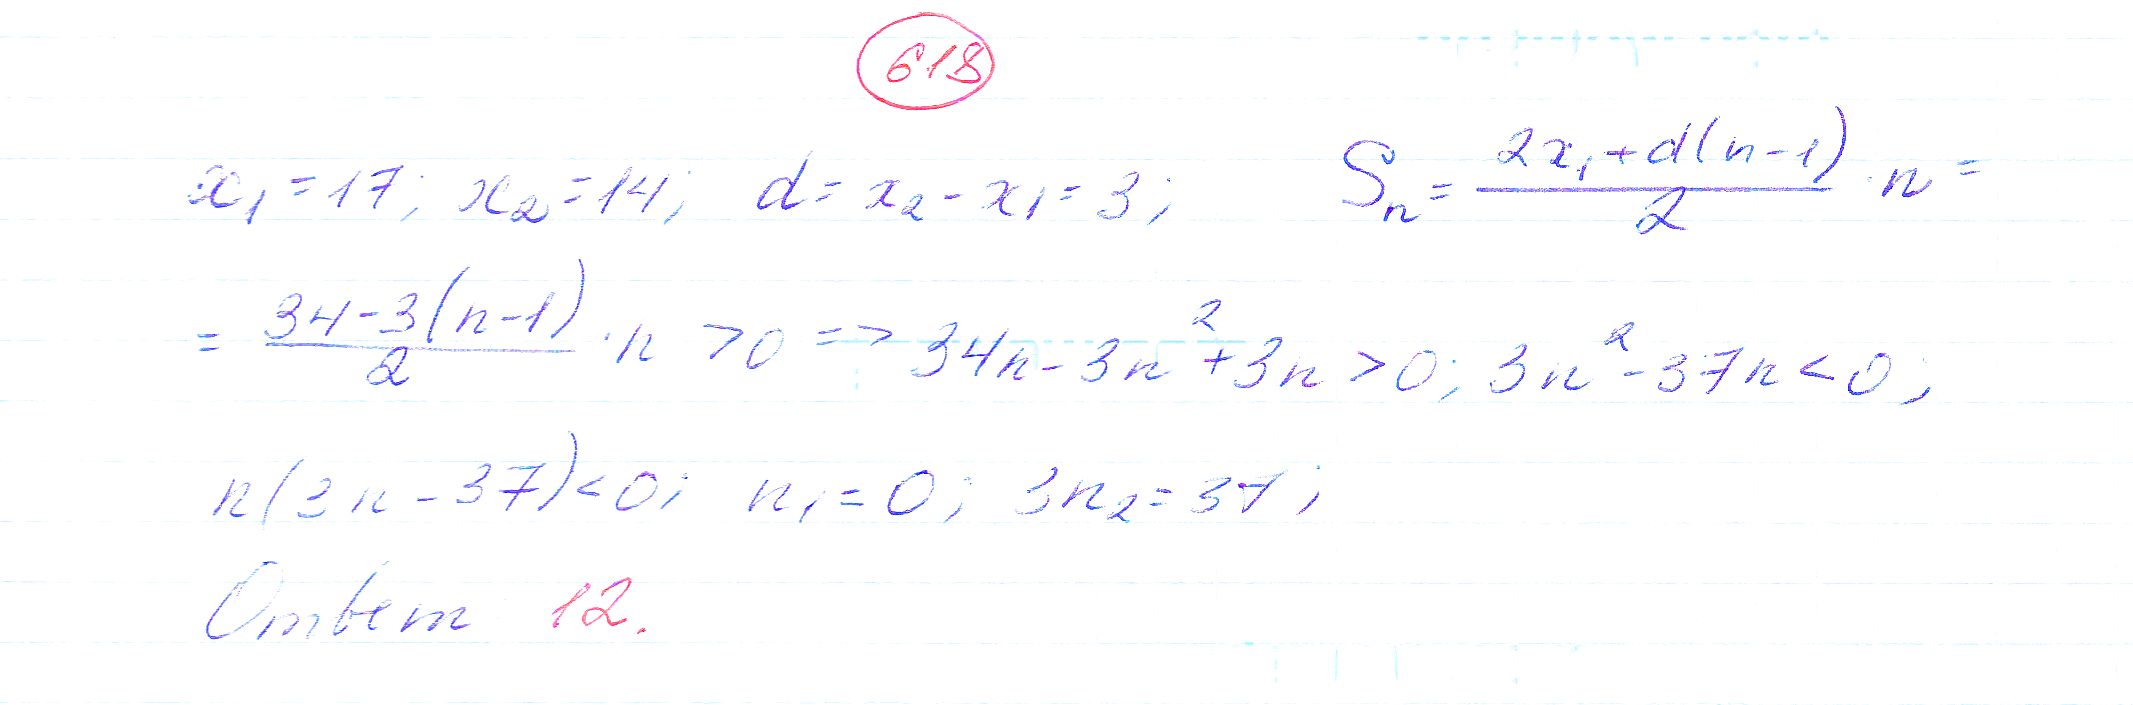 618
x₁ = 17; x₂ = 14; d = x₂ - x₁ = 3; Sₙ = (2x₁ + d(n-1))/2 · n =
= (34 - 3(n-1))/2 · n > 0 => 34n - 3n² + 3n > 0; 3n² - 37n < 0;
n(3n - 37) < 0; n₁ = 0; 3n₂ = 37;
Ответ 12.